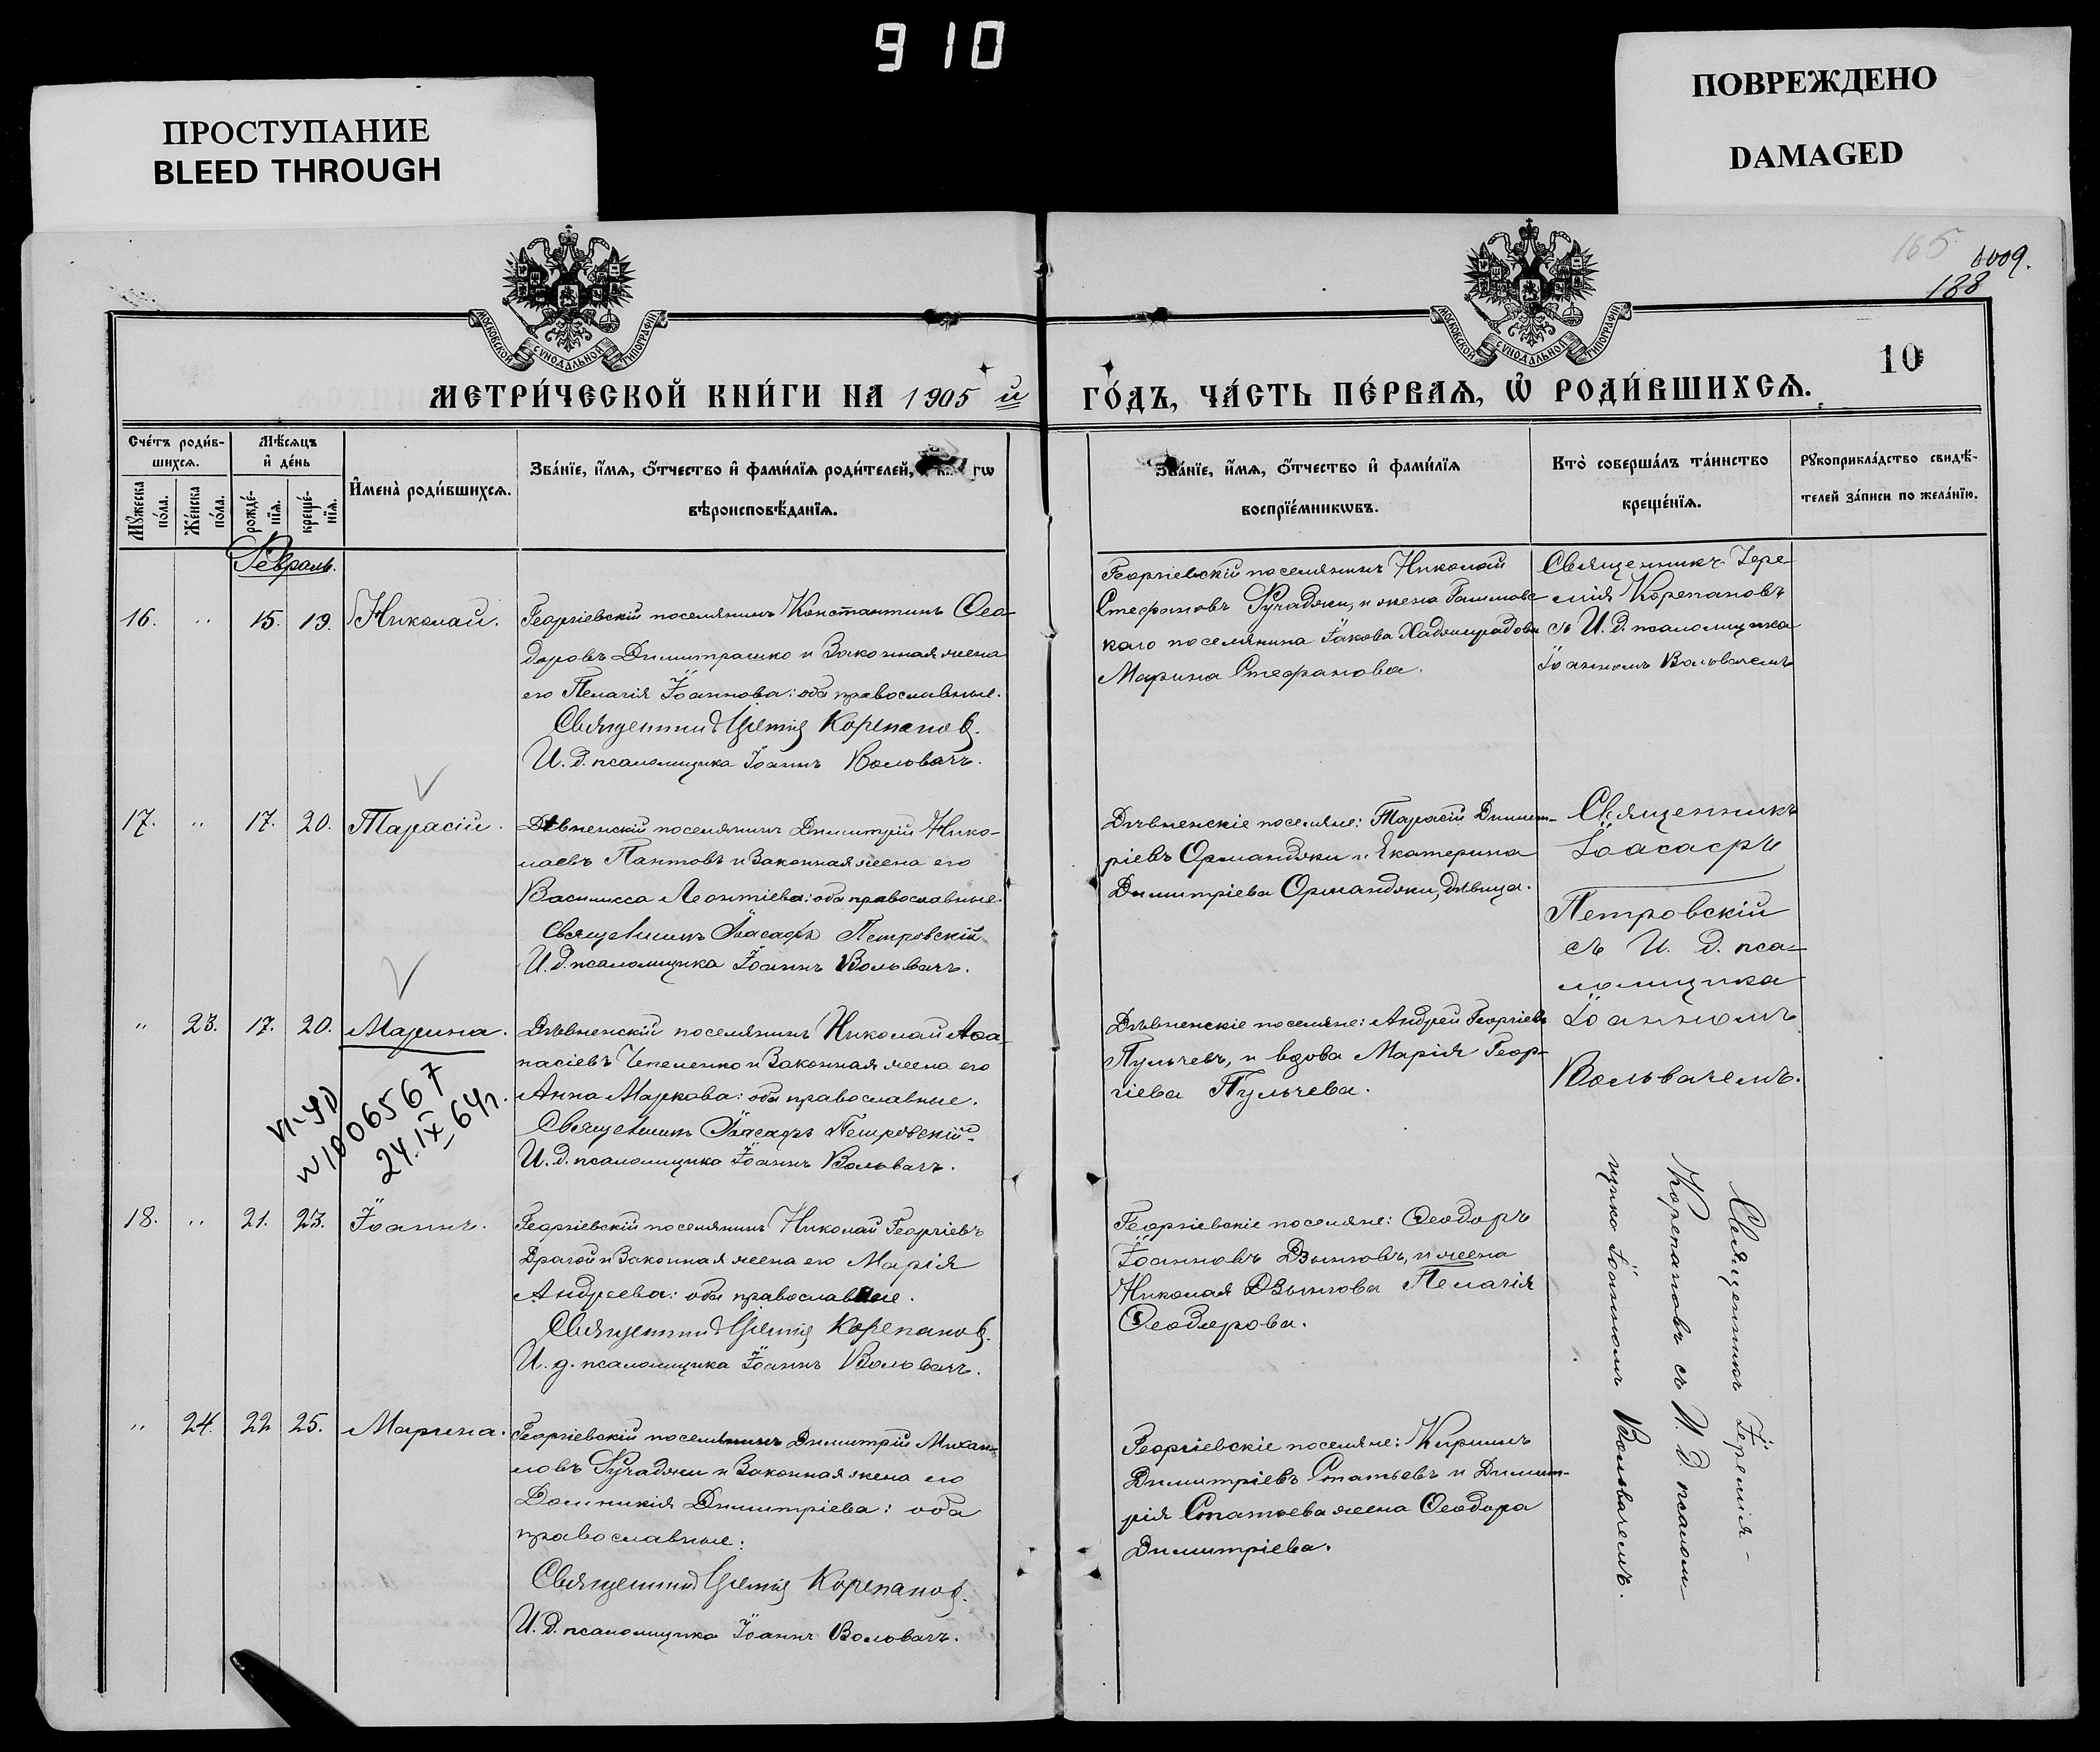 910
ПРОСТУПАНИЕ
BLEED THROUGH
ПОВРЕЖДЕНО
DAMAGED
165
188
МОСКОВСКОЙ СУНОДАЛЬНОЙ ТИПОГРАФІИ
МОСКОВСКОЙ СУНОДАЛЬНОЙ ТИПОГРАФІИ
10
МЕТРИ́ЧЕСКОЙ КНИ́ГИ НА 1905 й
ГО́ДЪ, ЧА́СТЬ ПЕ́РВАѦ, Ѡ҆ РОДИ́ВШИХСѦ.
Сче́тъ роди́в-
шихсѧ.
Мѣ́сѧцъ
и҆ де́нь
Мꙋ́жеска
по́ла.
Же́нска
по́ла.
рожде́-
нїѧ.
креще́-
нїѧ.
И҆мена̀ роди́вшихсѧ.
Зва́нїе, и҆́мѧ, ѻ҆́тчество и҆ фами́лїѧ роди́телей,
вѣроисповѣ́данїѧ.
Зва́нїе, и҆́мѧ, ѻ҆́тчество и҆ фами́лїѧ
воспрїе́мникѡвъ.
Кто̀ соверша́лъ та́инство
креще́нїѧ.
Рꙋкоприкла́дство свидѣ́-
телей за́писи по жела́нїю.
Февраль.
16. " 15. 19. Николай.
Георгіевскій поселянинъ Константинъ Ѳео-
доровъ Димитрашко и Законная жена
его Пелагія Іоаннова: оба православные.
Священникъ Іеремія Корепановъ.
И. д. псаломщика Іоаннъ Вольвачъ.
Георгіевскій поселянинъ Николай
Стефановъ Кучаджи, и жена
каго поселянина Іакова
Марина Стефанова.
Священникъ Іере-
мія Корепановъ
съ И. д. псаломщика
Іоанномъ Вольвачемъ
17. " 17. 20. Тарасій.
Дѣвненскій поселянинъ Димитрій Нико-
лаевъ Пантовъ и Законная жена его
Василисса Леонтіева: оба православные.
Священникъ Іоасафъ Петровскій
И. д. псаломщика Іоаннъ Вольвачъ.
Дѣвненскіе поселяне: Тарасій Димит-
ріевъ Орманджи и Екатерина
Димитріева Орманджи, дѣвица.
Священникъ
Іоасафъ
Петровскій
съ И. д. пса-
ломщика
Іоанномъ
Вольвачемъ.
" 23. 17. 20. Марина.
Дѣвненскій поселянинъ Николай Аѳа-
насіевъ Чепеленко и Законная жена его
Анна Маркова: оба православные.
Священникъ Іоасафъ Петровскій
И. д. псаломщика Іоаннъ Вольвачъ.
Дѣвненскіе поселяне: Андрей Георгіевъ
Пульчевъ, и вдова Марія Геор-
гіева Пульчева.
VI-УР
N 1006567
24.IX 64г.
18. " 21. 23. Іоаннъ.
Георгіевскій поселянинъ Николай Георгіевъ
Драгой и Законная жена его Марія
Андреева: оба православные.
Священникъ Іеремія Корепановъ.
И. д. псаломщика Іоаннъ Вольвачъ.
Георгіевскіе поселяне: Ѳеодоръ
Іоанновъ Дзынговъ, и жена
Николая Дзынгова Пелагія
Ѳеодорова.
Священникъ Іеремія
Корепановъ съ И. д. псалом
щика Іоанномъ Вольвачемъ.
" 24. 22 25. Марина.
Георгіевскій поселянинъ Димитрій Михаи-
ловъ Кучаджи и Законная жена его
Домникія Димитріева: оба
православные:
Священникъ Іеремія Корепановъ.
И. д. псаломщика Іоаннъ Вольвачъ.
Георгіевскіе поселяне: Кириллъ
Димитріевъ Статьевъ и Димит-
рія Статьева жена Ѳеодора
Димитріева.